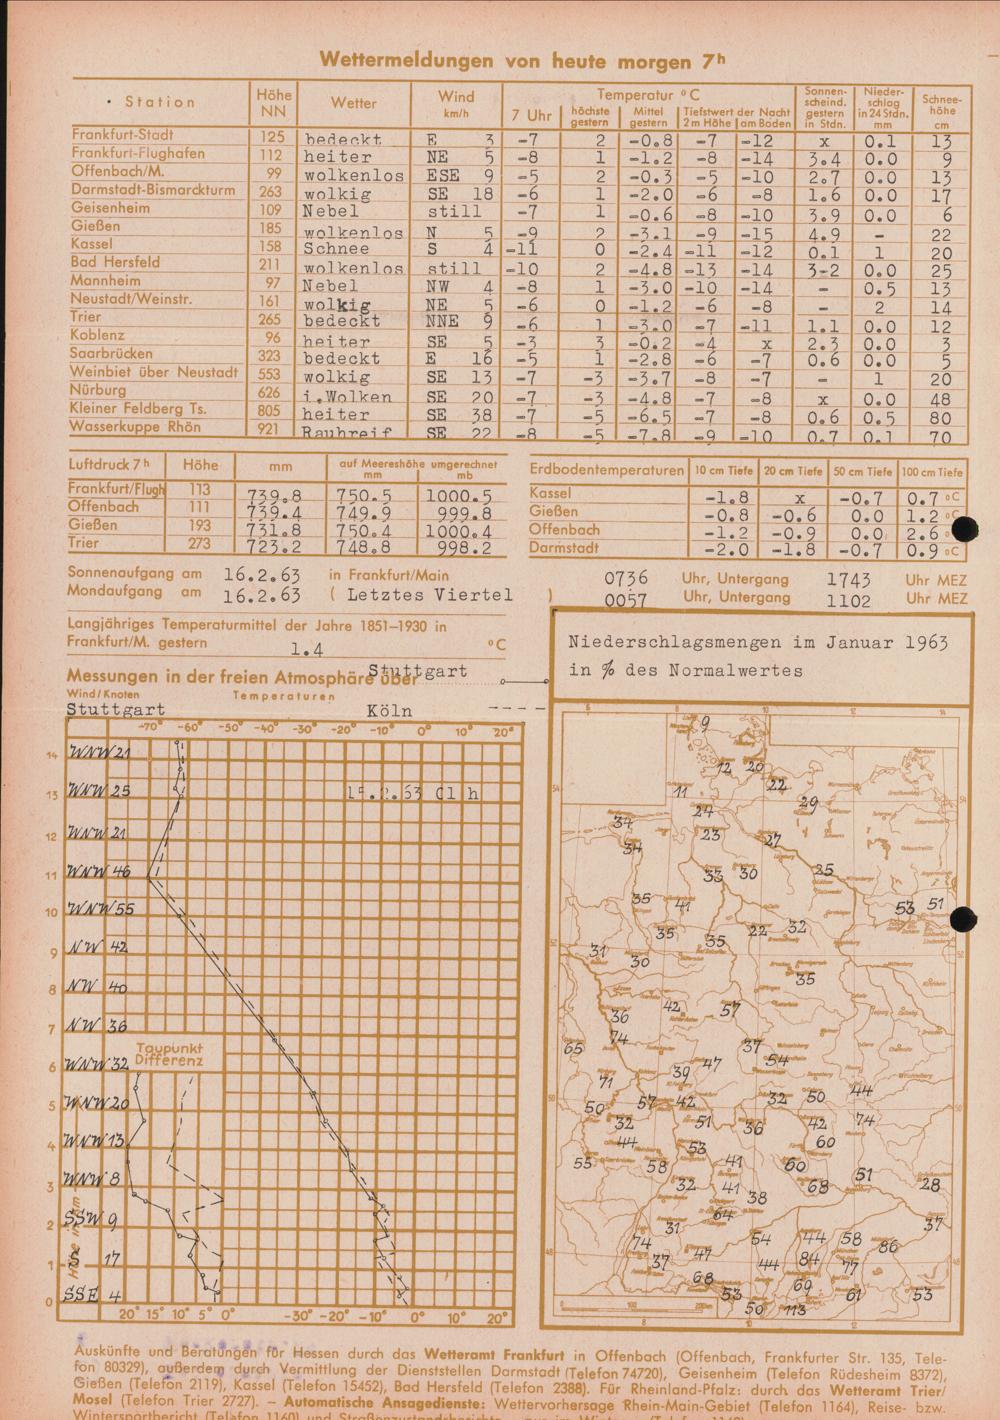 Wettermeldungen von heute morgen 7h
Station Höhe NN Wetter Wind km/h Temperatur °C Sonnenscheind. gestern in Stdn. Niederschlag in 24 Stdn. mm Schneehöhe cm
7 Uhr höchste gestern Mittel gestern Tiefstwert der Nacht 2m Höhe am Boden
Frankfurt-Stadt 125 bedeckt E 3 -7 2 -0.8 -7 -12 x 0.1 13
Frankfurt-Flughafen 112 heiter NE 5 -8 1 -1.2 -8 -14 3.4 0.0 9
Offenbach/M. 99 wolkenlos ESE 9 -5 2 -0.3 -5 -10 2.7 0.0 13
Darmstadt-Bismarckturm 263 wolkig SE 18 -6 1 -2.0 -6 -8 1.6 0.0 17
Geisenheim 109 Nebel still -7 1 -0.6 -8 -10 3.9 0.0 6
Gießen 185 wolkenlos N 5 -9 2 -3.1 -9 -15 4.9 - 22
Kassel 158 Schnee S 4 -11 0 -2.4 -11 -12 0.1 1 20
Bad Hersfeld 211 wolkenlos still -10 2 -4.8 -13 -14 3-2 0.0 25
Mannheim 97 Nebel NW 4 -8 1 -3.0 -10 -14 - 0.5 13
Neustadt/Weinstr. 161 wolkig NE 5 -6 0 -1.2 -6 -8 - 2 14
Trier 265 bedeckt NNE 9 -6 1 -3.0 -7 -11 1.1 0.0 12
Koblenz 96 heiter SE 5 -3 3 -0.2 -4 x 2.3 0.0 3
Saarbrücken 323 bedeckt E 16 -5 1 -2.8 -6 -7 0.6 0.0 5
Weinbiet über Neustadt 553 wolkig SE 13 -7 -3 -3.7 -8 -7 - 1 20
Nürburg 626 i.Wolken SE 20 -7 -3 -4.8 -7 -8 x 0.0 48
Kleiner Feldberg Ts. 805 heiter SE 38 -7 -5 -6.5 -7 -8 0.6 0.5 80
Wasserkuppe Rhön 921 Rauhreif SE 22 -8 -5 -7.8 -9 -10 0.7 0.1 70
Luftdruck 7h Höhe mm auf Meereshöhe umgerechnet mm mb
Frankfurt/Flugh 113 739.8 750.5 1000.5
Offenbach 111 739.4 749.9 999.8
Gießen 193 731.8 750.4 1000.4
Trier 273 723.2 748.8 998.2
Erdbodentemperaturen 10 cm Tiefe 20 cm Tiefe 50 cm Tiefe 100 cm Tiefe
Kassel -1.8 x -0.7 0.7 °C
Gießen -0.8 -0.6 0.0 1.2 °C
Offenbach -1.2 -0.9 0.0 2.6
Darmstadt -2.0 -1.8 -0.7 0.9 °C
Sonnenaufgang am 16.2.63 in Frankfurt/Main 0736 Uhr, Untergang 1743 Uhr MEZ
Mondaufgang am 16.2.63 ( Letztes Viertel ) 0057 Uhr, Untergang 1102 Uhr MEZ
Langjähriges Temperaturmittel der Jahre 1851–1930 in
Frankfurt/M. gestern 1.4 °C
Messungen in der freien Atmosphäre über Stuttgart
Wind/Knoten Temperaturen
Stuttgart Köln
-70° -60° -50° -40° -30° -20° -10° 0° 10° 20°
14 WNW 21
13 WNW 25 15.2.63 01 h
12 WNW 21
11 WNW 46
10 WNW 55
9 NW 42
8 NW 40
7 NW 36
Taupunkt
Differenz
6 WNW 32
5 WNW 20
4 WNW 13
3 WNW 8
2 SSW 9
1 S 17
0 SSE 4
Höhe in km
20° 15° 10° 5° 0° -30° -20° -10° 0° 10° 20°
Niederschlagsmengen im Januar 1963
in % des Normalwertes
6 8 10 12 14
9
12 20
11 22
24 29
34 23 27
34
33 30 25
35 41 53 51
35 35 22 32
31 30
35
36 42 57
74
65 37
39 47 54
71
50 57 42 32 50 44
32 51 36 42 74
44 53 60
55 58 41 60
32 41 38 68 51 28
64
31 37
74 54 44 58 86
37 47 44 84 77
68 69
53 61 53
50 113
0 100 200km
8 10 12
Auskünfte und Beratungen für Hessen durch das Wetteramt Frankfurt in Offenbach (Offenbach, Frankfurter Str. 135, Tele-
fon 80329), außerdem durch Vermittlung der Dienststellen Darmstadt (Telefon 74720), Geisenheim (Telefon Rüdesheim 8372),
Gießen (Telefon 2119), Kassel (Telefon 15452), Bad Hersfeld (Telefon 2388). Für Rheinland-Pfalz: durch das Wetteramt Trier/
Mosel (Telefon Trier 2727). – Automatische Ansagedienste: Wettervorhersage Rhein-Main-Gebiet (Telefon 1164), Reise- bzw.
Wintersportbericht (Telefon 1160) und Straßenzustandsberichte